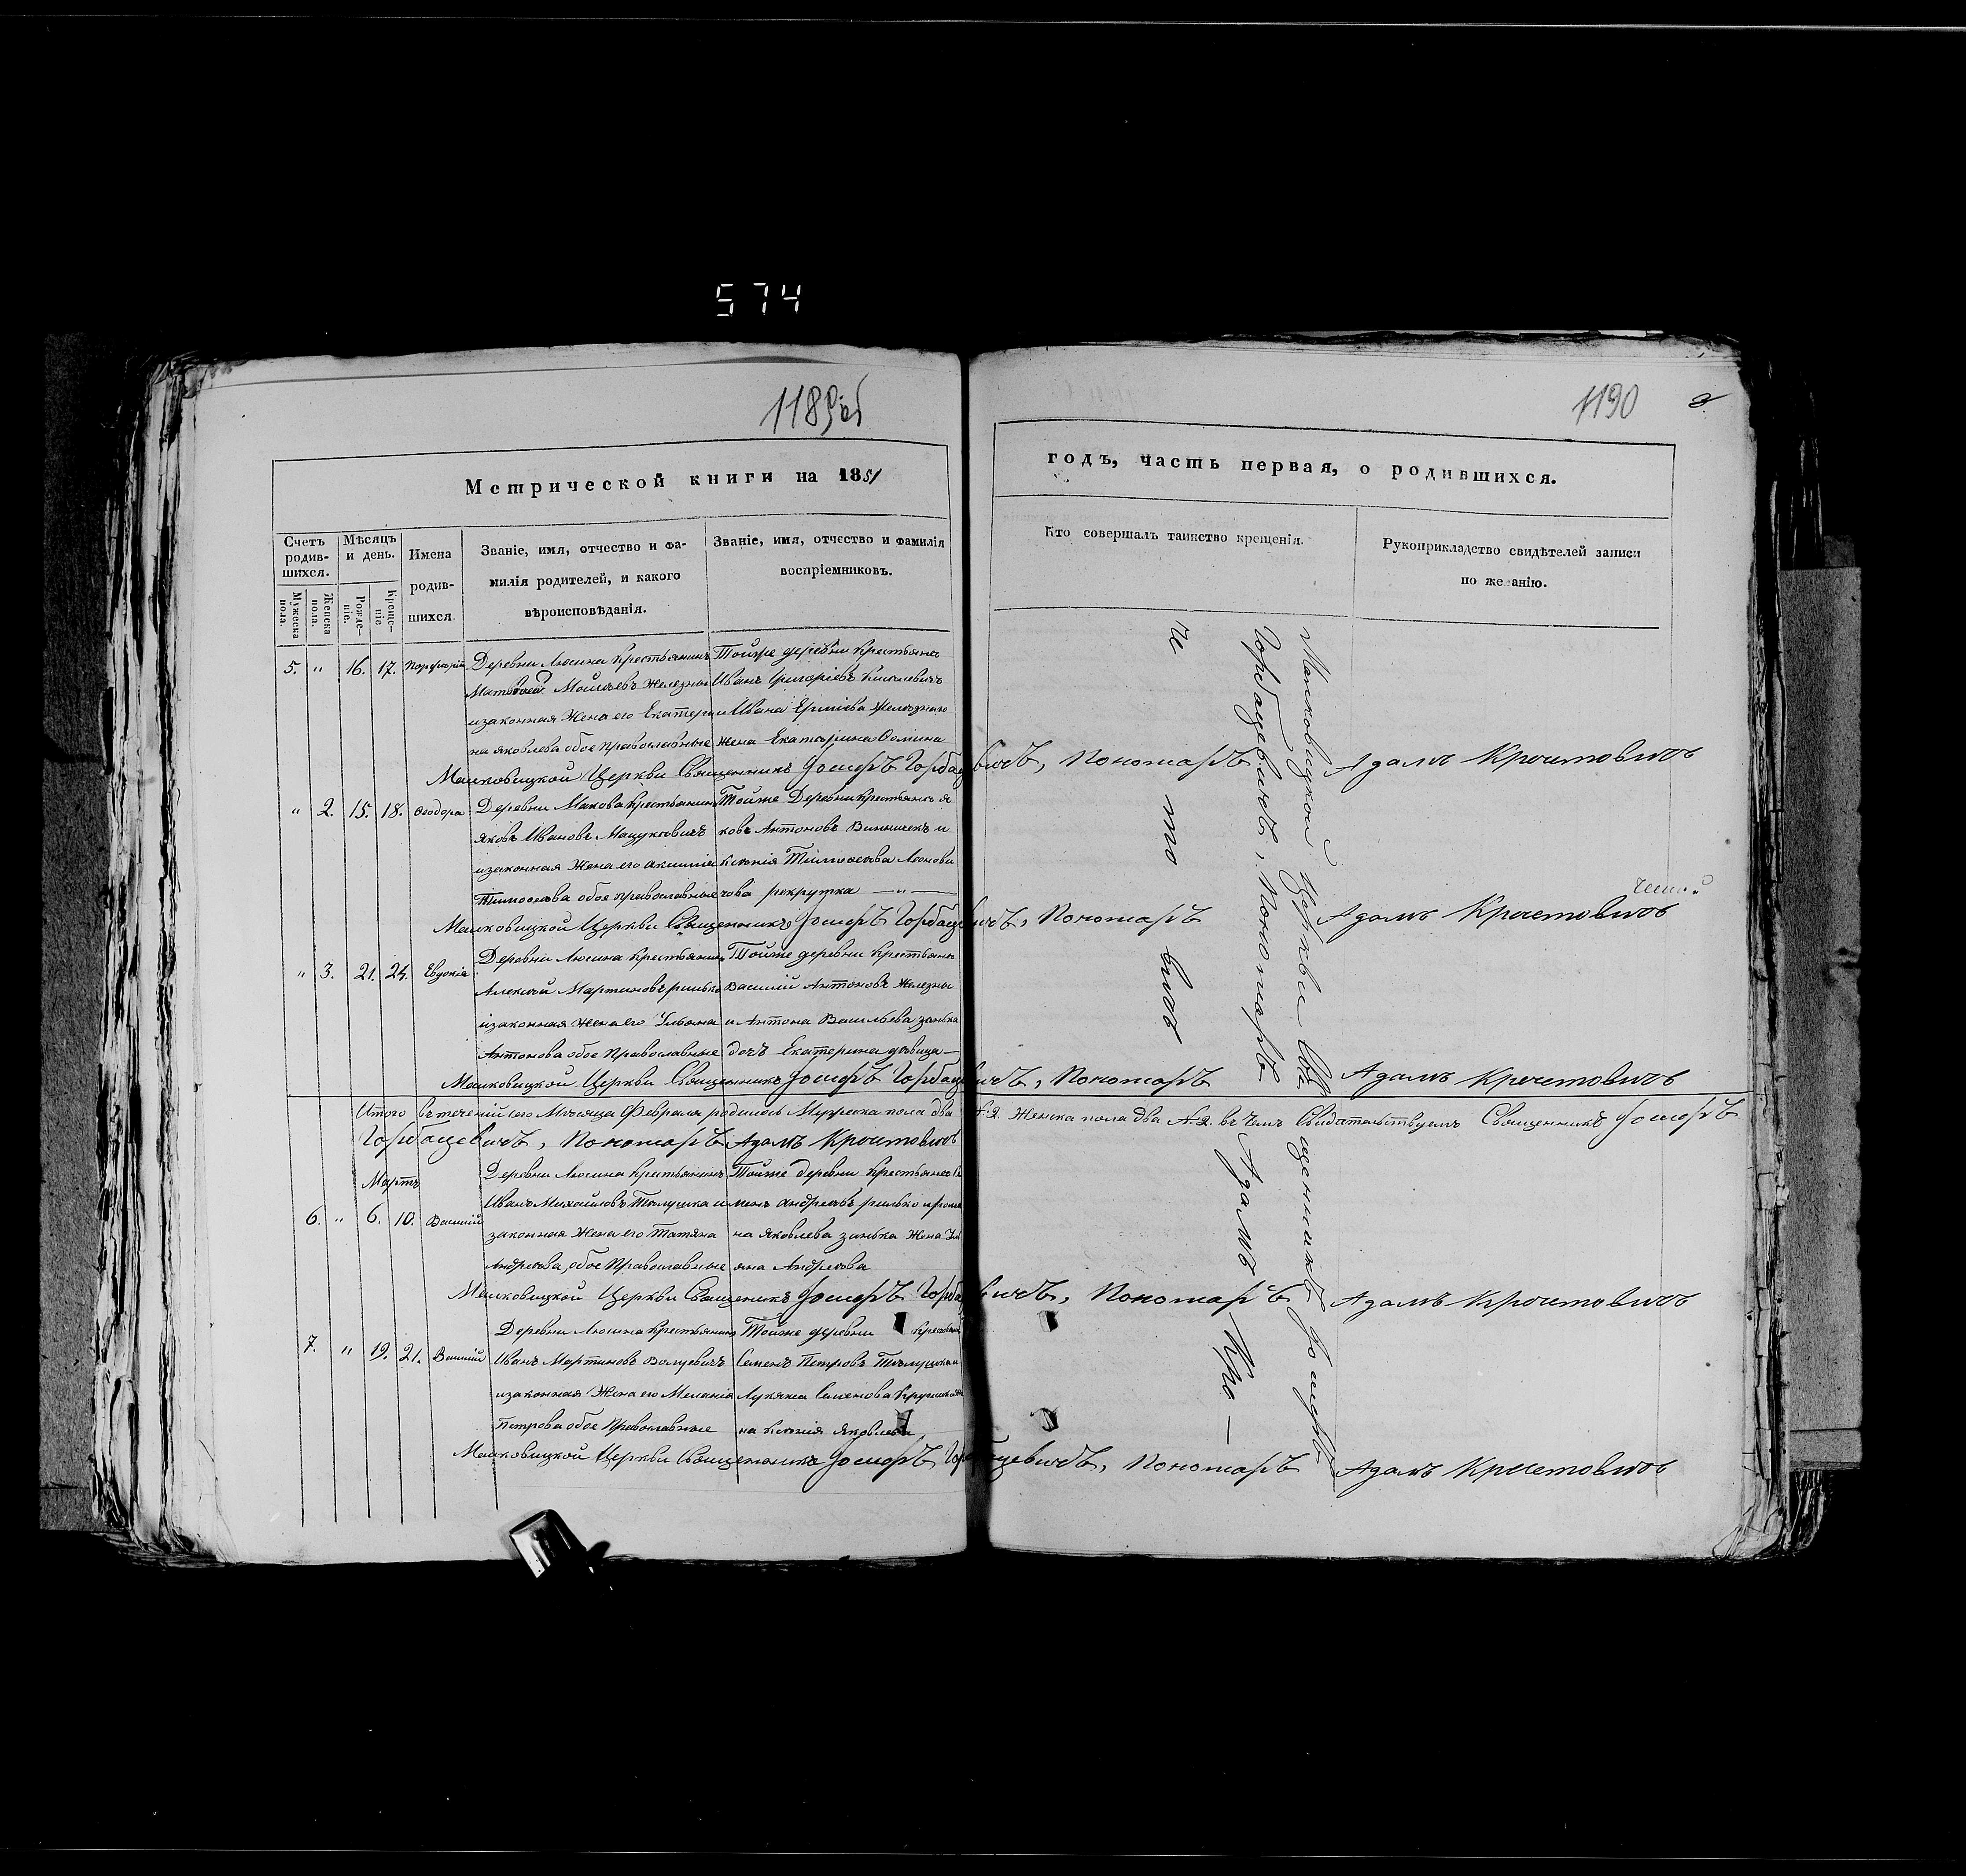 574
1189об
1190
Метрической книги на 1851
годъ, часть первая, о родившихся.
Счетъ родив-шихся.
Мужеска пола.
Женска пола.
Мѣсяцъ и день.
Рожде-ніе.
Креще-ніе
Имена родив-шихся
Званіе, имя, отчество и фа-
милія родителей, и какого
вѣроисповѣданія.
Званіе, имя, отчество и фамилія
воспріемниковъ.
Кто совершалъ таинство крещенія.
Рукоприкладство свидѣтелей записи
по желанію.
5. " 16. 17.
Деревни Люсина Крестьянинъ
Матвей Моисѣевъ Железны
изаконная Жена его Екатери
на Яковлева обое Православные
Тойже деревни Крестьяне
Иванъ Григоріевъ
и Ивана Железнаго
жена Екатерина Фомина
Маковицкой Церкви Священникъ Іосифъ Горбацевичъ, Пономарь Адамъ Кречетовичъ
" 2. 15. 18. Феодора
Деревни Макова Крестьянинъ
Яковъ Ивановъ Мацукевичъ
изаконная Жена его
Тимофеева обое Православные
Тойже Деревни Крестьяне Я
ковъ Антоновъ и
Ксенія Тимофеева Леонови
чова рекрутка — " —
Маковицкой Церкви Священникъ Іосифъ Горбацевичъ, Пономарь Адамъ Кречетовичъ
" 3. 21. 24. Евдокія
Деревни Люсина Крестьянинъ
Алексѣй Мартиновъ рилько
изаконная Жена его Ульяна
Антонова обое Православные
Тойже деревни Крестьяне
Василій Антоновъ Железны
и Антона Васильева занька
дочъ Екатерина девица —
Маковицкой Церкви Священникъ Іосифъ Горбацевичъ, Пономарь Адамъ Кречетовичъ
Итого втеченій сего Мѣсяца Февраля родилось Мужеска пола два №.2. Женска пола два №.2. въ чемъ Свидѣтельствуемъ Священникъ Іосифъ
Горбацевичъ, Пономарь Адамъ Кречетовичъ
Мартъ
6. " 6. 10. Василій
Деревни Люсина Крестьянинъ
Иванъ Михайловъ Талушка и
законная Жена его Татяна
Андреева, обое Православные
Тойже деревни Крестьяне Се
менъ Андреевъ рилько
на Яковлева занька Жена Ул
яна Андреева
Маковицкой Церкви Священникъ Іосифъ Горбацевичъ, Пономарь Адамъ Кречетовичъ
7. " 19. 21. Василій
Деревни Люсина Крестьянинъ
Иванъ Мартиновъ
изаконная Жена его Меланія
Петрова обое Православные
Тойже деревни Крестьяне
Семенъ Петровъ
Лукяна Семенова
на Ксенія Яковлева
Маковицкой Церкви Священникъ Іосифъ Горбацевичъ, Пономарь Адамъ Кречетовичъ
Маковицкой Церкви Священникъ Іосифъ
Горбацевичъ, Пономарь Адамъ Кре —
че то вичъ